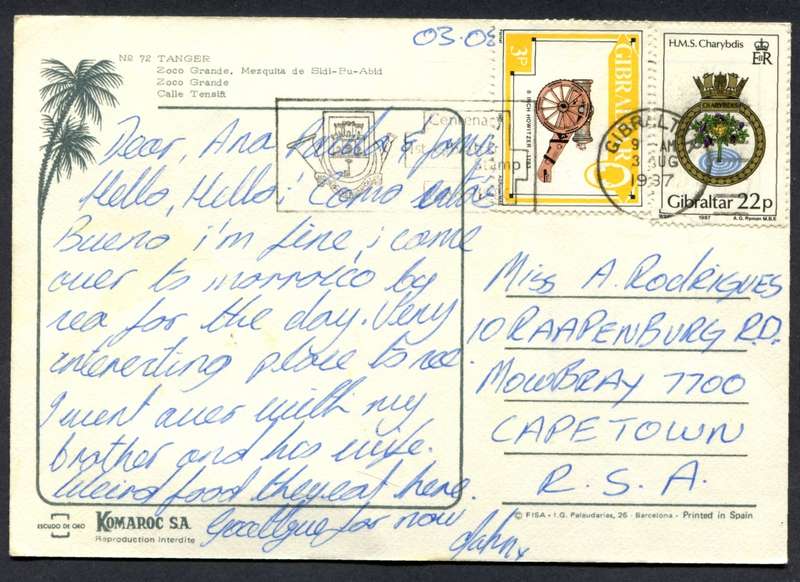 03.08
Nº 72 TANGER
Zoco Grande, Mezquita de Sidi-Bu-Abid
Zoco Grande
Calle Tensift
Dear, Ana
Hello, Hello, Como estas
Bueno i'm fine, i came
over to morrocco by
sea for the day. Very
interesting place to see.
I went over with my
brother and his wife.
Weird food they eat here.
Goodbye for now
ESCUDO DE ORO
KOMAROC S.A.
Reproduction Interdite
Centena
Stamp
3p
GIBRALTAR
8 INCH HOWITZER 1783
H.M.S. Charybdis
EIIR
CHARYBDIS
Gibraltar 22p
1987
A.G. Ryman M.B.E
GIBRALTAR
9 AM
3 AUG
1987
Miss A. Rodrigues
10 RAAPENBURG RD.
MOWBRAY 7700
CAPE TOWN
R.S.A.
© FISA - I.G. Palaudarias, 26 - Barcelona - Printed in Spain